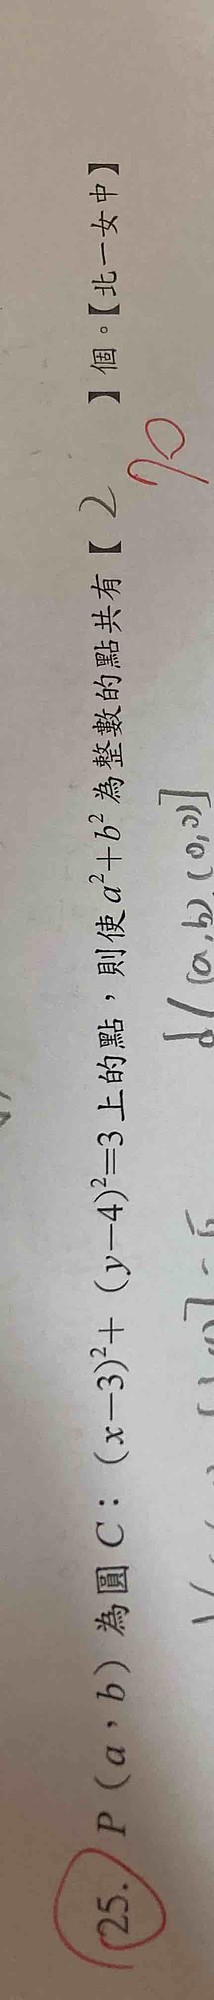 25. P(a,b)為圓C:(x−3)²+(y−4)²=3上的點,則使a²+b²為整數的點共有【 2 】個。【北一女中】
70
d[(a,b),(0,0)]